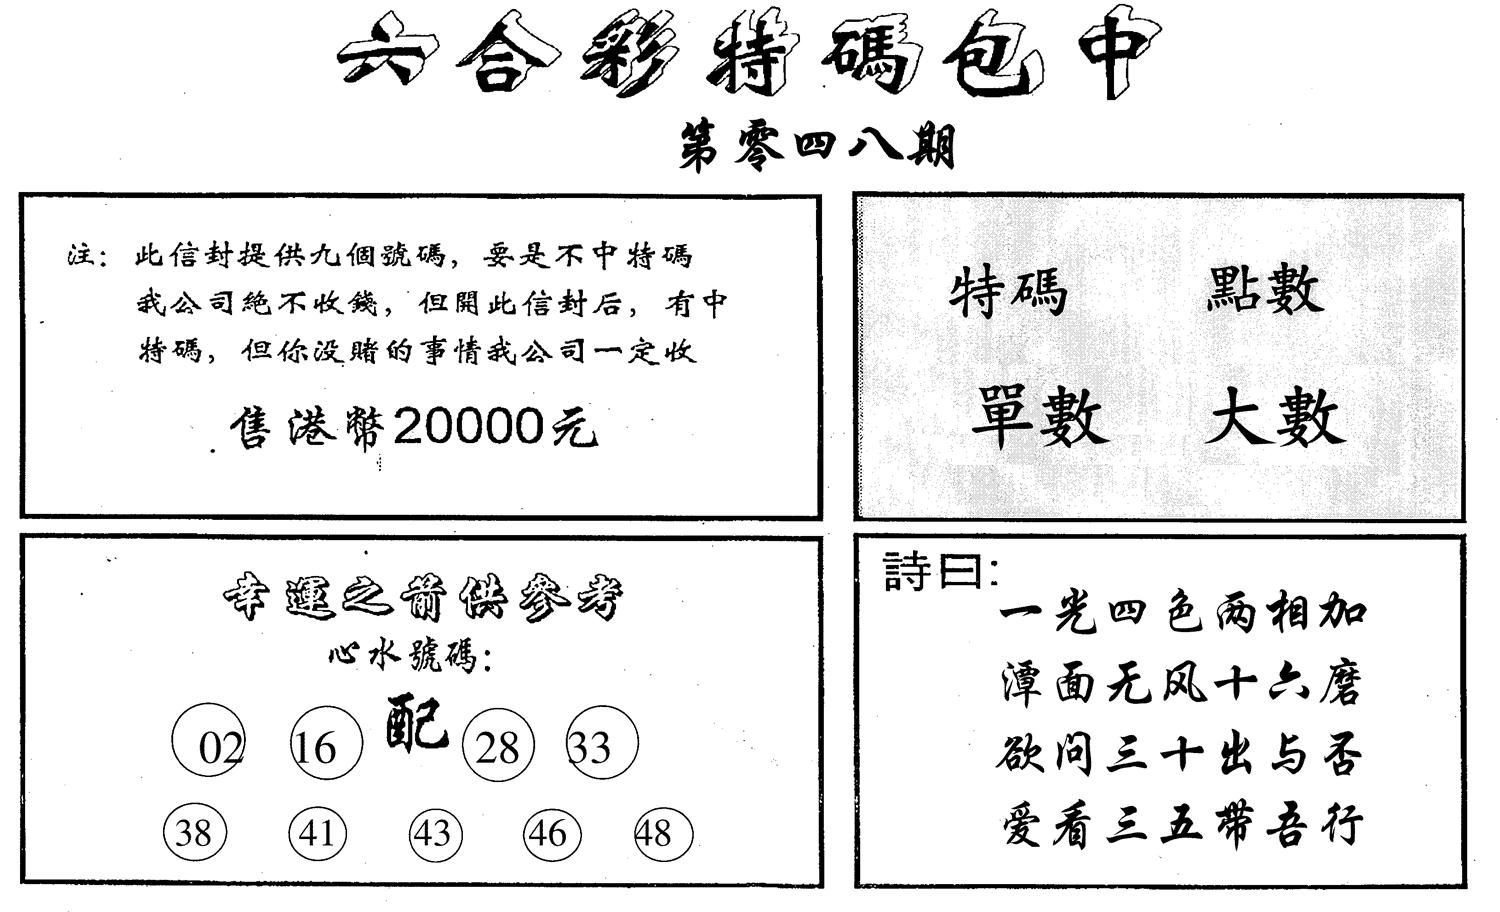 六合彩特碼包中
第零四八期
注：此信封提供九個號碼，要是不中特碼
我公司絕不收錢，但開此信封后，有中
特碼，但你没賭的事情我公司一定收
售港幣20000元
特碼 點數
單數 大數
幸運之箭供參考
心水號碼：
02 16 配 28 33
38 41 43 46 48
詩曰：
一光四色两相加
潭面无风十六磨
欲问三十出与否
爱看三五带吾行